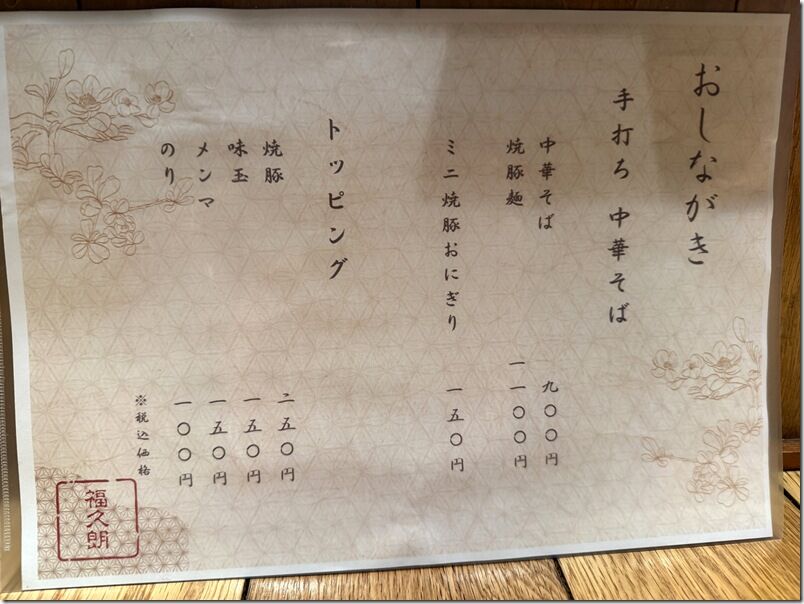 おしながき
手打ち 中華そば
中華そば 九〇〇円
焼豚麺 一一〇〇円
ミニ焼豚おにぎり 一五〇円
トッピング
焼豚 二五〇円
味玉 一五〇円
メンマ 一五〇円
のり 一〇〇円
※税込価格
福久朗